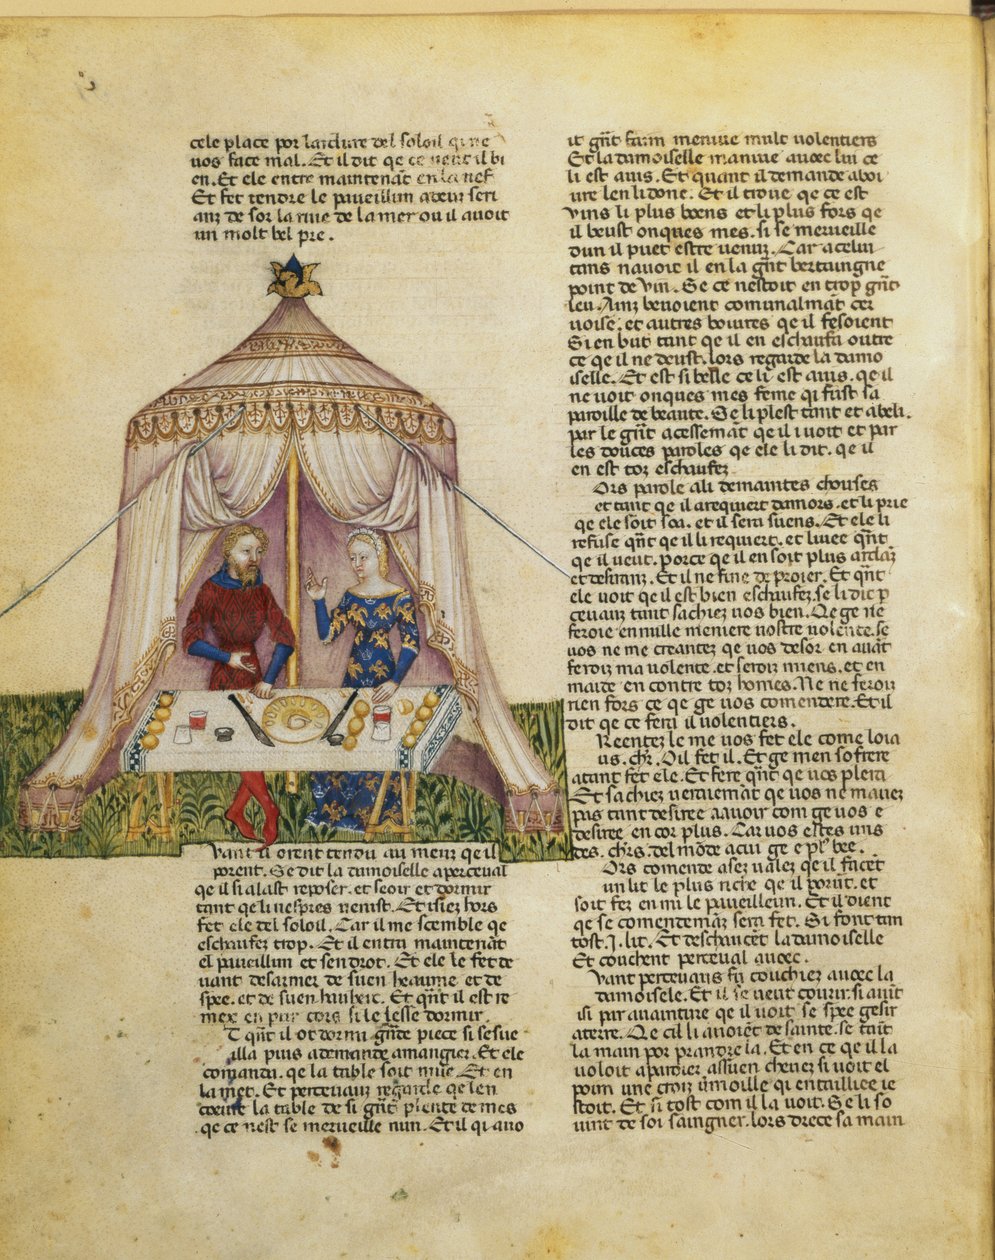 cele place por lardure del soloil qi ne
vos face mal. Et il dit qe ce veut il bi
en. Et ele entre maintenãt en la nef
Et fet tendre le paveillun a ceus seri
anz de sor la rive de la mer ou il avoit
un molt bel pre.
Vant il orent tendu au meuz qe il
porent. Se dit la damoiselle a perceval
qe il si alast reposer. et seoir et dormir
tant qe li vespres venist. Et siez hors
fet ele del soloil. Car il me scemble qe
eschaufez trop. Et il entra maintenãt
el paveillun et sen drot. Et ele le fet de
vant desarmer de suen heaume et de
spee. et de suen hauberc. Et qñt il est re
mex en pur cors si le lesse dormir.
T qñt il ot dormi gñde piece si sesve
illa puis a demande a mangier. Et ele
comanda. qe la table soit mise. Et en
la met. Et percevaux regarde qe len
coeuvre la table de si gñt plente de mes
qe ce nest se merveille nun. Et il qi avo
it gñt faim menjue mult volentiers
Et la damoiselle manjue avoec lui ce
li est avis. Et quant il demande a boi
ivre len li done. Et il trove qe ce est
vins li plus boens et li plus fors qe
il beust onques mes. si se merveille
dun il puet estre venuz. Car a celui
tans navoit il en la gñt bertaingne
point de vin. Se ce nestoit en trop gñt
leu. Ainz bevoient comunalmãt cer
voise. et autres boivres qe il fesoient
Si en but tant qe il en eschaufa outre
ce qe il ne deust. lors regarde la damo
iselle. Et est si belle ce li est avis. qe il
ne voit onqes mes feme qi fust sa
paroille de beaute. Se li plest tant et abeli.
par le gñt acessemãt qe il i voit et par
les douces paroles qe ele li dit. qe il
en est toz eschaufez
Ors parole a li de maintes chouses
et tant qe il a reqiert damors. et li prie
qe ele soit soa. et il sera suens. Et ele li
refuse qñt qe il li reqiert. et livee qñt
qe il veut. Porce qe il en soit plus ardãz
et desiranz. Et il ne fine de proier. Et qñt
ele voit qe il est bien eschaufez. se li dit p
cevaux tant sachiez vos bien. Qe ge ne
feroie en nille meniere vostre volente. se
vos ne me creantez qe vos desor en avãt
feroiz ma volente. et seroiz miens. et en
maide en contre toz homes. Ne ne feroiz
nien fors ce qe ge vos comendere. Et il
doit qe ce fera il volentiers.
Reentez le me vos fet ele come loia
us. chr. Oil fet il. Et ge men sofrere
atant fet ele. Et fere qñt qe vos plera
Et sachiez veraiemãt qe vos ne mavez
pas tant desiree a avoir com ge vos e
desiree en cor plus. Car vos estes uns
des. chrs. del mõde a cui ge e pl' bee.
Ors comende a sez valez qe il facẽt
un lit le plus riche qe il porũt. et
soit fez en mi le paveilleun. Et il dient
qe se comendemãz sera fet. Si font tan
tost. j. lit. Et deschaucẽt la damoiselle
Et couchent perceval avoec.
Vant percevaus fu couchiez avoec la
damoisele. Et il se veut covrir. si avit
isi par avainture qe il voit se spee gesir
a terre. Qe cil li avoiẽt desainte. se tãt
la main por prandre la. Et en ce qe il la
voloit apardier assuen chevez si voit el
poim une croiz vmoille qi entailliee ie
stoit. Et si tost com il la voit. Se li so
vint de soi saingner. lors drece sa main